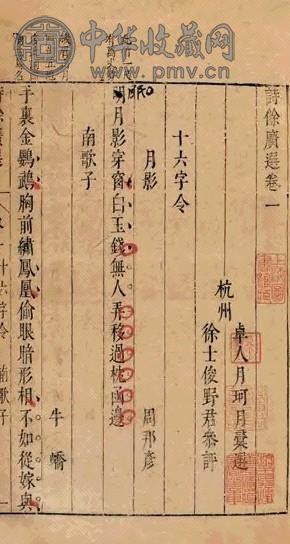 中华收藏网
www.pmv.cn
詩餘廣選卷一
杭州
卓人月珂月彙選
徐士俊野君叅評
十六字令
月影 周邦彥
眠
明月影穿窗白玉錢無人弄移過枕函邊
南歌子 牛嶠
手裏金鸚鵡胸前繡鳳凰偷眼暗形相不如從嫁與